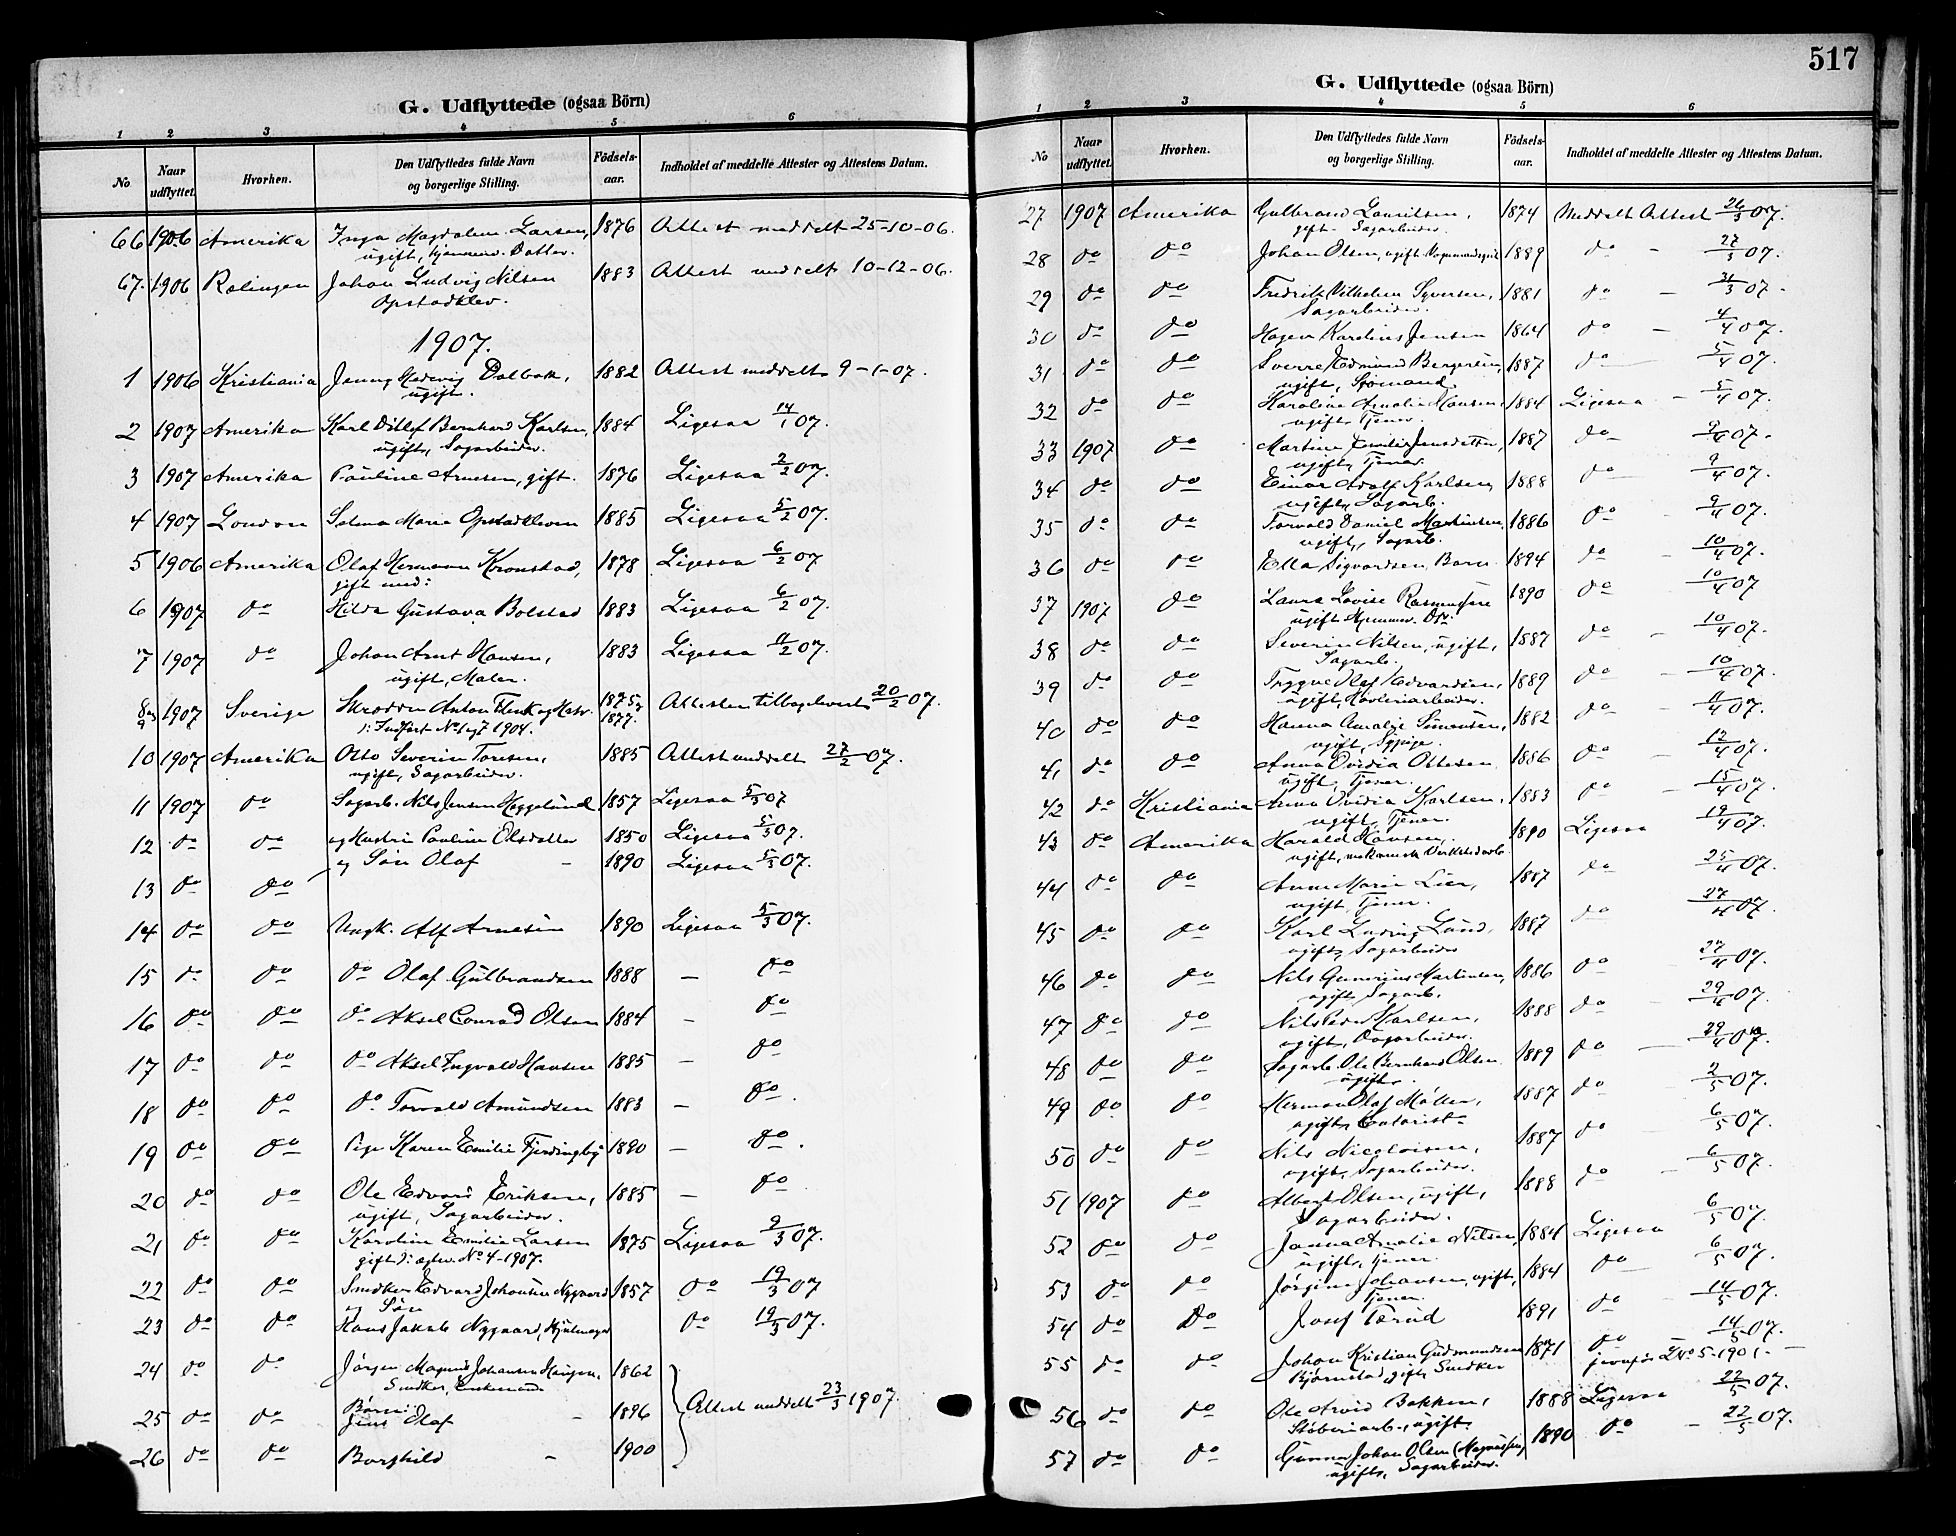 G. Udflyttede (ogsaa Börn)
1 2 3 4 5 6
No Naar udflyttet. Hvorhen. Den Udflyttedes fulde Navn og borgerlige Stilling. Födsels-aar. Indholdet af meddelte Attester og Attestens Datum.
66 1906 Amerika Inga Magdalene Larsen, 1876 Attest meddelt 25-10-06.
ugift, hjemmev. Datter.
67. 1906 Rælingen Johan Ludvig Nilsen 1883 Attest meddelt 10-12-06.
Opstadklev.
1907.
1 1906 Kristiania Jenny Hedvig Dalbak, 1882 Attest meddelt 9-1-07.
ugift.
2 1907 Amerika Karl Ditlef Bernhard Karlsen, 1884 Ligesaa 14/1 07.
ugift, Sagarbeider.
3 1907 Amerika Pauline Arnesen, gift. 1876 Ligesaa 2/2 07.
4 1907 London Selma Marie Opstadkleven 1885 Ligesaa 5/2 07.
5 1906 Amerika Olaf Hermann Kronstad, 1878 Ligesaa 6/2 07
gift med:
6 1907 do Hilda Gustava Bolstad 1883 Ligesaa 6/2 07.
7 1907 do Johan Arnt Hansen, 1883 Ligesaa 11/2 07.
ugift, Maler.
8 og 9 1907 Sverige Skrædder Anton Flenk og Hustr. 1875 og 1877. Attesten tilbageleveret 20/2 07.
): Indført No 1 og 2 1904.
10 1907 Amerika Otto Severin Toresen, 1885 Attest meddelt 27/2 07.
ugift, Sagarbeider.
11 1907 do Sagarb. Nils Jensen Heggelund 1857 Ligesaa 5/3 07
12 do do og Hustru Pauline Olsdatter 1850 Ligesaa 5/3 07.
13 do do og Søn Olaf - 1890 Ligesaa 5/3 07.
14 do do Ungk. Alf Arnesen 1890 Ligesaa 5/3 07.
15 do do do Olaf Gulbrandsen 1888 - do
16 do do do Aksel Conrad Olsen 1884 - do
17 do do do Aksel Ingvald Hansen 1885 - do
18 do do do Torvald Amundsen 1883 - do.
19 do do Pige Karen Emilie Fjerdingby 1890 - do.
20 do do Ole Edvard Eriksen, 1885 - do
ugift, Sagarbeider.
21 do do Karoline Emilie Larsen 1875 Ligesaa 9/3 07.
gift ): No 4-1907.
22 do do Snedker Edvard Johansen Nygaard 1857 do 19/3 07
og Søn
23 do do Hans Jakob Nygaard, Hjulmager do 19/3 07.
24 do do Jørgen Magnus Johansen Haugen, 1862
Snedker, Enkemand
Børn:
25 do do Jens Olaf - 1896 Attest meddelt 23/3 1907.
26 do do Borghild - 1900
517
G. Udflyttede (ogsaa Börn)
1 2 3 4 5 6
No Naar udflyttet. Hvorhen. Den Udflyttedes fulde Navn og borgerlige Stilling. Födsels-aar. Indholdet af meddelte Attester og Attestens Datum.
27 1907 Amerika Gulbrand Lauritsen, 1874 Meddelt Attest 26/3 07.
gift. Sagarbeider.
28 do do Johan Olsen, ugift 1889 do - 27/3 07.
29 do do Fredrik Vilhelm Syversen, 1881 do - 07.
Sagarbeider.
30 do do Hagen Karelius Jensen 1864 do - 4/4 07.
31 do do Sverre Edmund Bergersen, 1887 do - 5/4 07.
ugift, Sjømand
32 do do Karoline Amalie Hansen, 1884 Ligesaa - 5/4 07.
ugift Tjener.
33 1907 do Martine Emilie Jensdatter, 1887 do 9/4 07.
ugift, Tjener.
34 do do Einar Adolf Karlsen, 1888 do - 9/4 07.
ugift, Sagarb.
35 do do Torvald Daniel Martinsen, 1886 do - 9/4 07.
ugift, Sagarb.
36 do do Ella Sigvardsen, Barn 1894 do - 10/4 07.
37 1907 do Laura Lovise Rasmussen 1890 do 10/4 07
ugift Hjemmev. Dtr.
38 do do Severin Nilsen, ugift, 1887 do - 10/4 07.
Sagarb.
39 do do Trygve Olaf Edvardsen, 1889 do - 10/4 07.
ugift, Høvleriarbeider.
40 do do Hanna Amalie Simensen, 1882 do - 11/4 07.
ugift, Sypige.
41 do do Anna Ovidia Ottesen 1886 do - 12/4 07.
ugift, Tjener.
42 do Kristiania Anna Ovidia Karlsen, 1883 do - 15/4 07.
ugift, Tjener.
43 do Amerika Harald Hansen, 1890 Ligesaa 19/4 07.
ugift, mekanisk Verkstedarb.
44 do do Anne Marie Lier, 1887 do 25/4 07.
ugift, Tjener.
45 do do Karl Ludvig Lund, 1887 do 27/4 07.
ugift, Sagarbeider
46 do do Nils Gunerius Martinsen, 1886 do 27/4 07.
ugift, Sagarb.
47 do do Nils Peder Karlsen, 1888 do - 29/4 07.
ugift, Sagarbeider.
48 do do Sagarb. Ole Bernhard Olsen 1889 do - 29/4 07.
ugift.
49 do do Herman Olaf Møller, 1887 do - 2/5 07.
ugift, Contorist
50 do do Nils Nicolaisen, 1887 do - 6/5 07.
ugift, Sagarbeider.
51 1907 do Albert Olsen, ugift, 1888 do - 6/5 07.
Sagarbeider.
52 do do Janna Amalie Nilsen, 1884 Ligesaa 6/5 07.
ugift, Tjener.
53 do do Jørgine Johansen, ugift, 1884 do 6/5 07.
Tjener.
54 do Do Josef Tærud 1891 do - 14/5 07.
55 do do Johan Kristian Gudmundsen 1871 do 14/5 07.
Bjørnstad, gift, Snedker jevnfør No 5-1901. -
56 do do Ole Arvid Bakken, 1888 Ligesaa 22/5 07.
Støberiarb., ugift
57 do do Gunnar Johan Olsen (Magnussen) 1890 do - 22/5 07.
ugift, Sagarbeider.